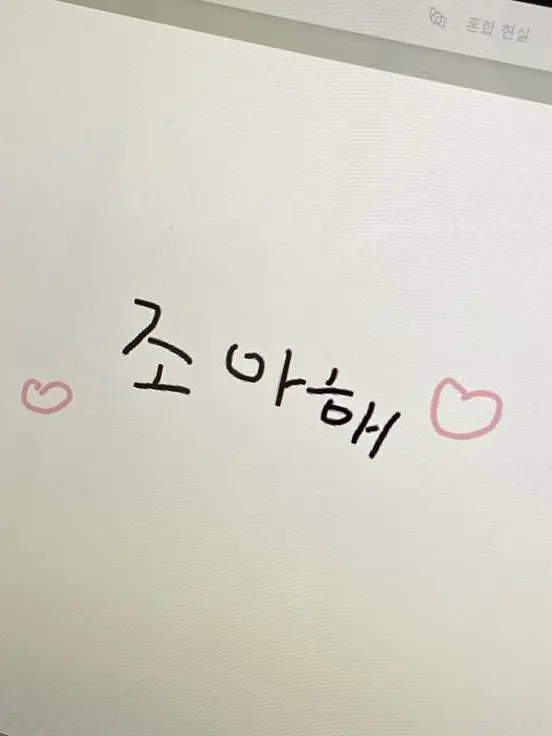 혼합 현실
조아해